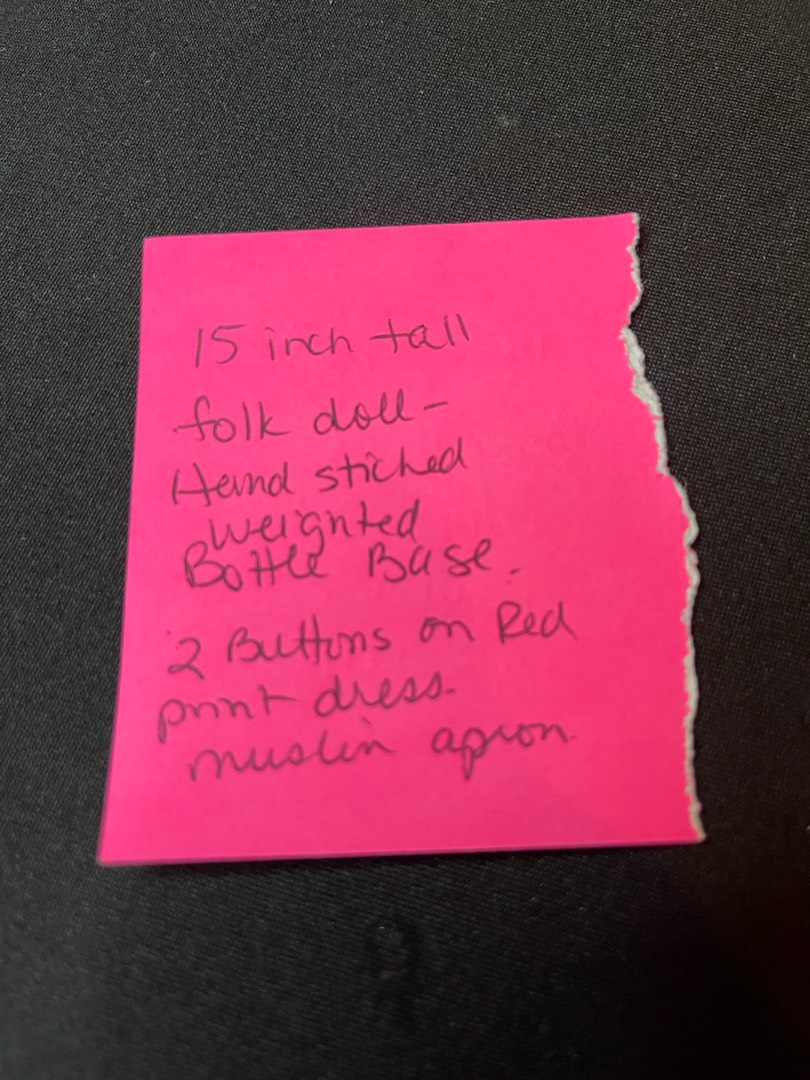 15 inch tall
folk doll-
Hand stiched
weighted
Bottle Base.
2 Buttons on Red
print dress-
muslin apron.